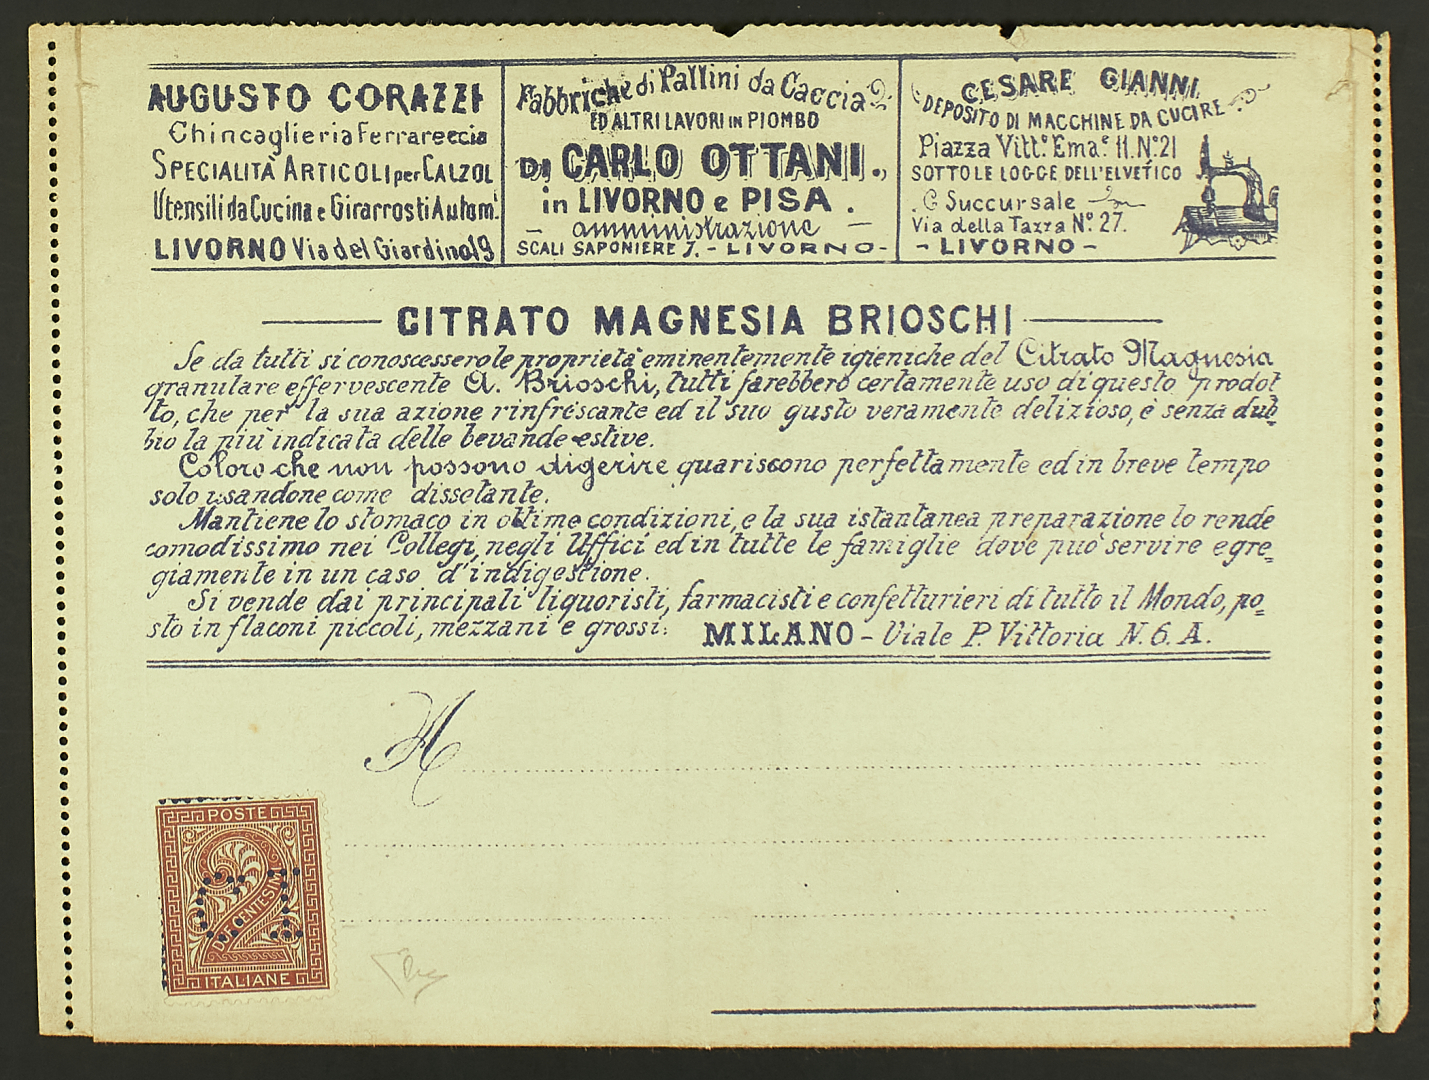 AUGUSTO CORAZZI
Chincaglieria Ferrareccia
SPECIALITÀ ARTICOLI per CALZOL
Utensili da Cucina e Girarrosti Autom.
LIVORNO Via del Giardino 19
Fabbriche di Pallini da Caccia
ED ALTRI LAVORI IN PIOMBO
DI CARLO OTTANI.
in LIVORNO e PISA.
- amministrazione -
SCALI SAPONIERE 7. - LIVORNO -
CESARE GIANNI
DEPOSITO DI MACCHINE DA CUCIRE
Piazza Vitt.º Ema.e II. Nº 21
SOTTO LE LOGGE DELL'ELVETICO
e Succursale
Via della Tazza Nº 27.
- LIVORNO -
CITRATO MAGNESIA BRIOSCHI
Se da tutti si conoscessero le proprietà eminentemente igieniche del Citrato Magnesia
granulare effervescente A. Brioschi, tutti farebbero certamente uso di questo prodot
to, che per la sua azione rinfrescante ed il suo gusto veramente delizioso, è senza dub=
bio la più indicata delle bevande estive.
Coloro che non possono digerire quariscono perfettamente ed in breve tempo
solo usandone come dissetante.
Mantiene lo stomaco in ottime condizioni, e la sua istantanea preparazione lo rende
comodissimo nei Collegi, negli Uffici ed in tutte le famiglie dove può servire egre=
giamente in un caso d'indigestione.
Si vende dai principali liquoristi, farmacisti e confetturieri di tutto il Mondo, po=
sto in flaconi piccoli, mezzani e grossi:
MILANO - Viale P. Vittoria N. 6. A.
A
POSTE
2
DUE CENTESIMI
ITALIANE